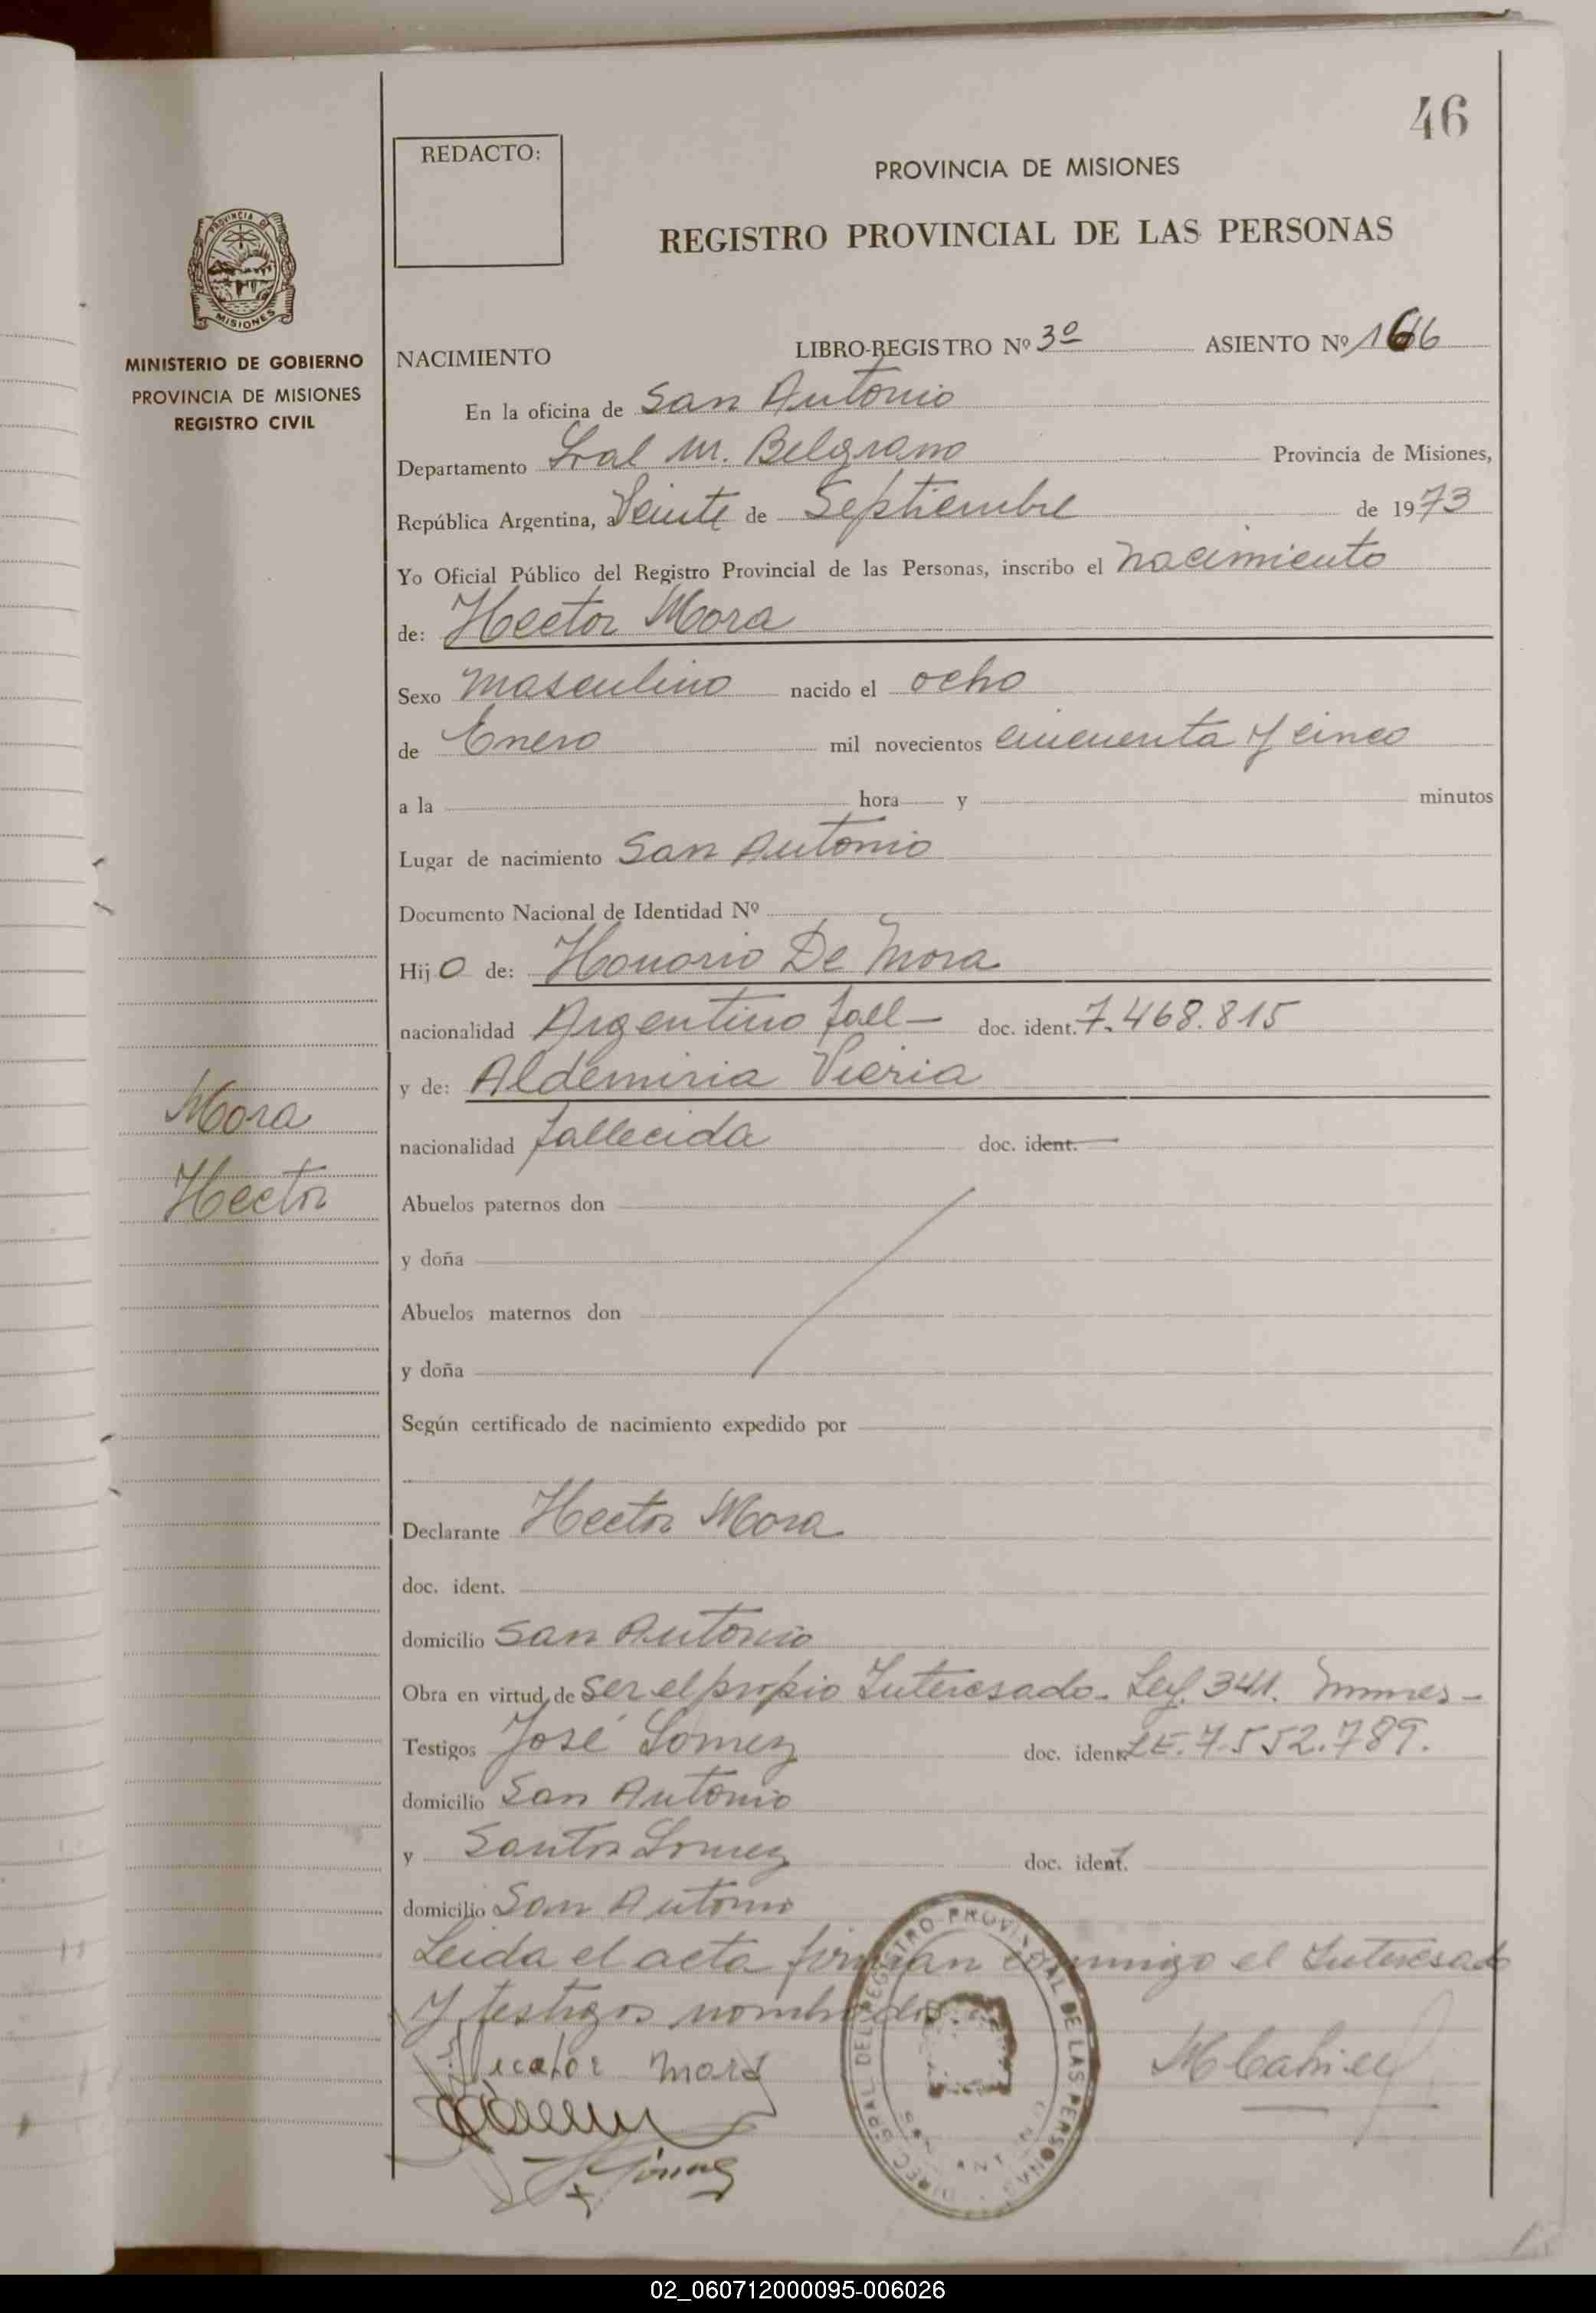 46
REDACTO:
PROVINCIA DE MISIONES
REGISTRO PROVINCIAL DE LAS PERSONAS
PROVINCIA DE
MISIONES
MINISTERIO DE GOBIERNO
PROVINCIA DE MISIONES
REGISTRO CIVIL
NACIMIENTO LIBRO-REGISTRO Nº 3º ASIENTO Nº
En la oficina de San Antonio
Departamento Gral M. Belgrano Provincia de Misiones,
República Argentina, a Veinte de Septiembre de 1973
Yo Oficial Público del Registro Provincial de las Personas, inscribo el nacimiento
de: Hector Mora
Sexo masculino nacido el ocho
de Enero mil novecientos cincuenta y cinco
a la hora y minutos
Lugar de nacimiento San Antonio
Documento Nacional de Identidad Nº
Hijo de: Honorio De Mora
nacionalidad Argentino fall- doc. ident. 7.468.815
y de: Aldemiria Vieria
nacionalidad fallecida doc. ident.
Mora
Hector
Abuelos paternos don
y doña
Abuelos maternos don
y doña
Según certificado de nacimiento expedido por
Declarante Hector Mora
doc. ident.
domicilio San Antonio
Obra en virtud de ser el propio Interesado. Ley. 341.
Testigos José Gomez doc. ident. LE. 7.552.789.
domicilio San Antonio
y Santos Gomez doc. ident.
domicilio San Antonio
Leida el acta firman conmigo el Interesado
y testigos nombrados
Hector Mora
DIREC. GRAL. DEL REGISTRO PROVINCIAL DE LAS PERSONAS
SAN ANTONIO
Gómez
02_060712000095-006026